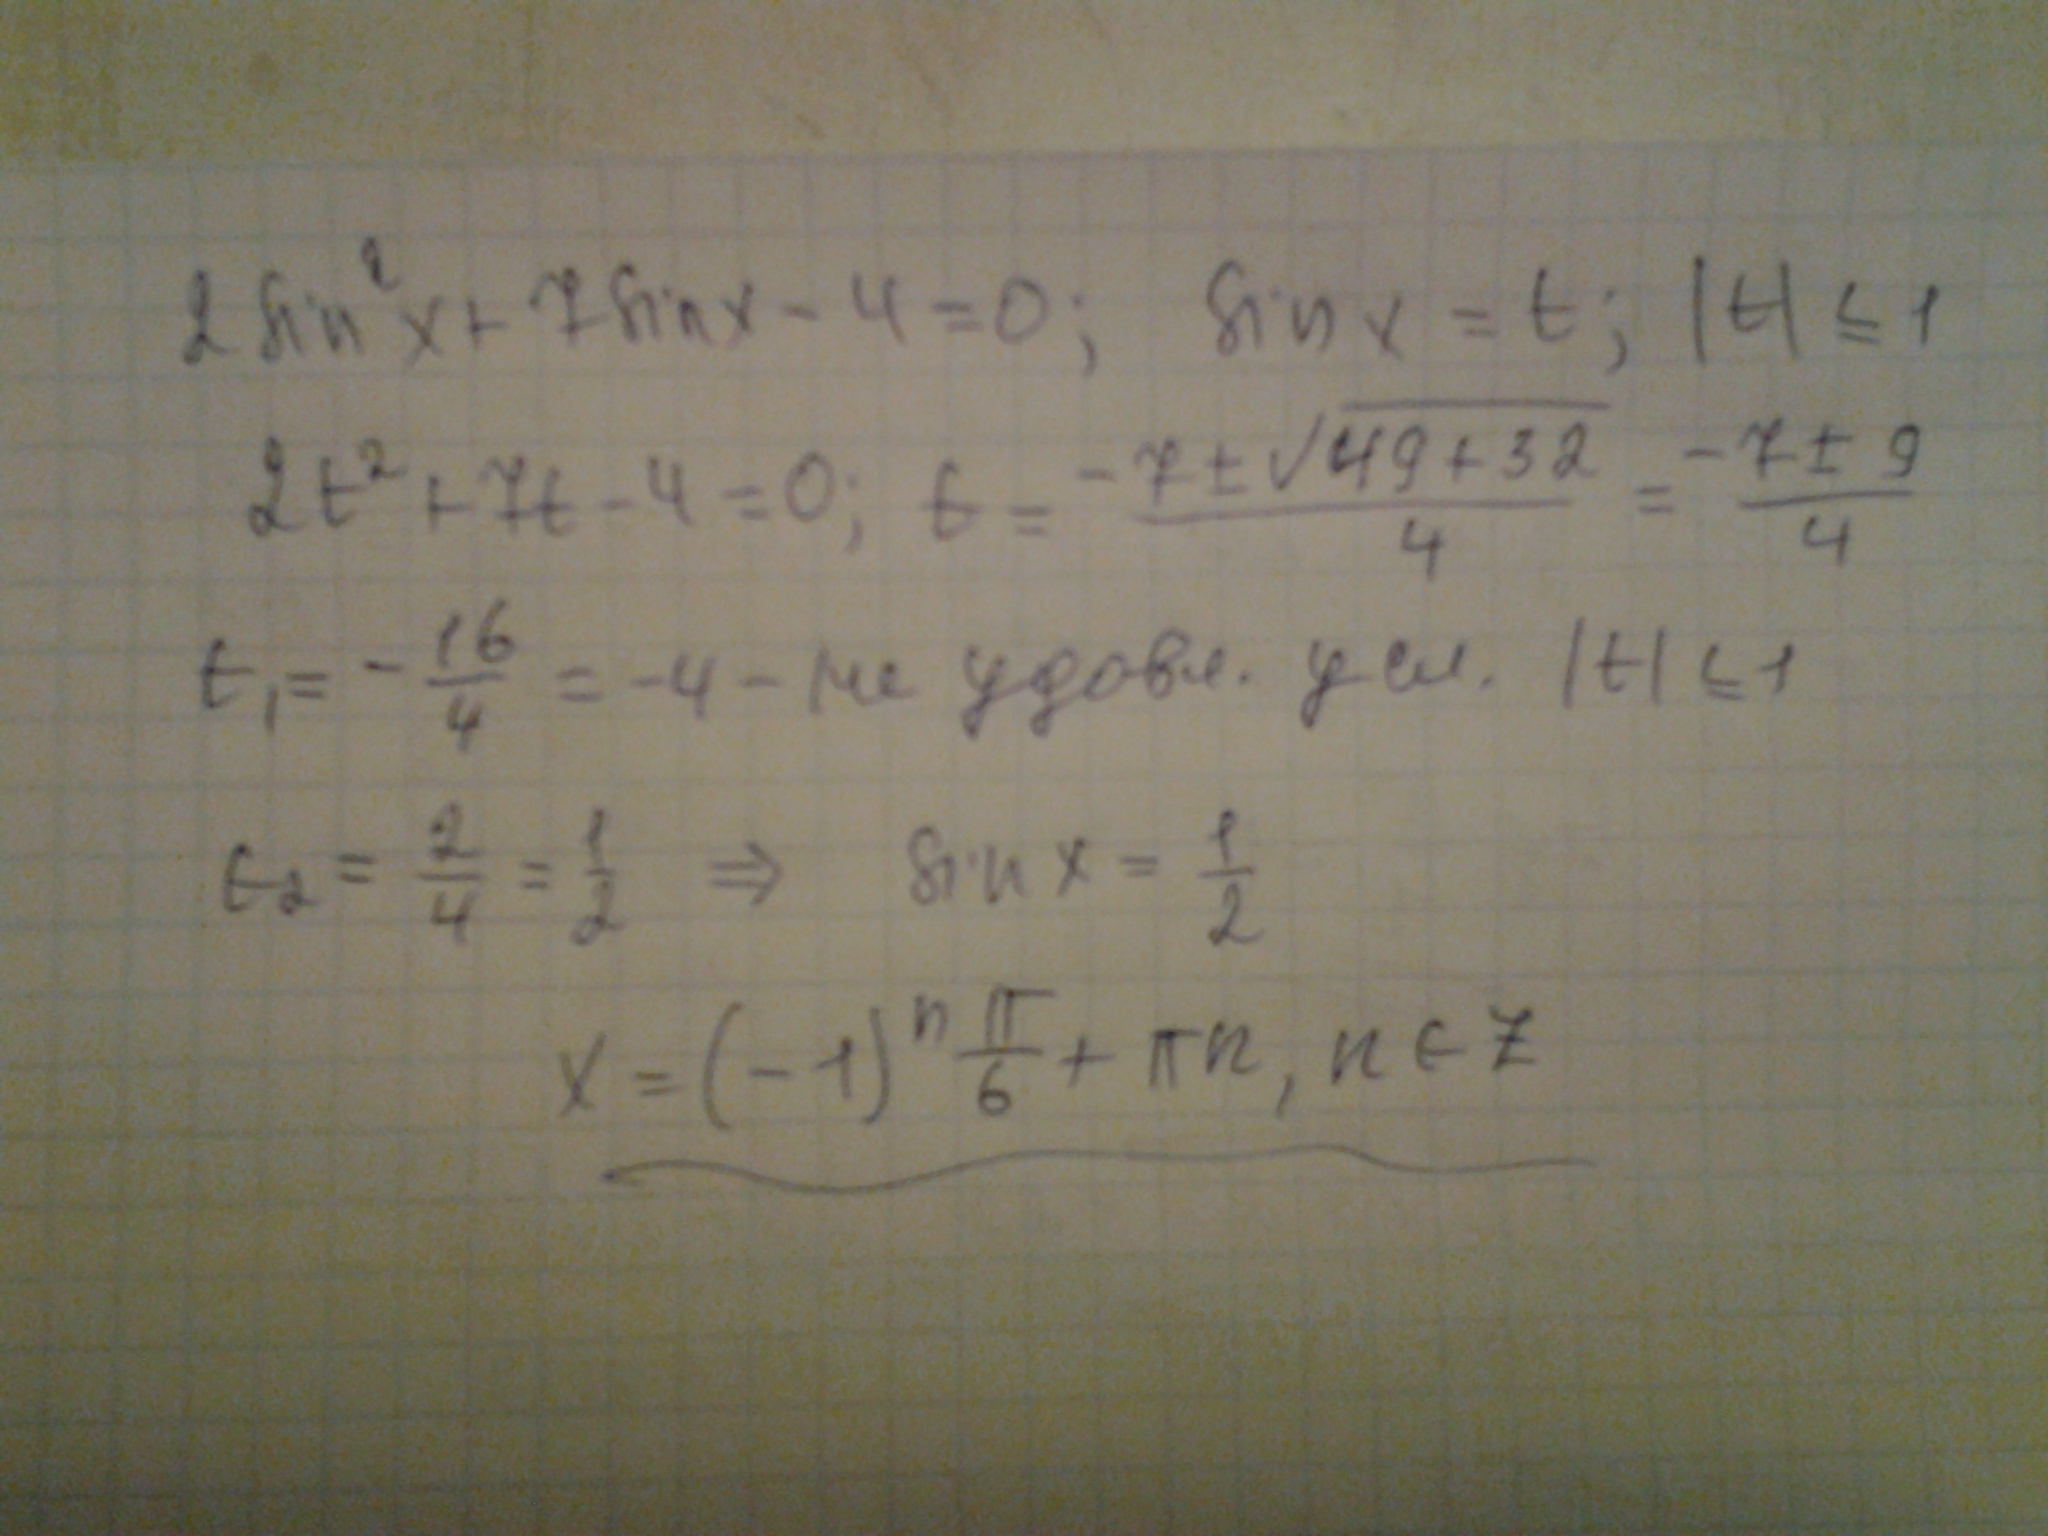 2 sin² x + 7 sin x - 4 = 0; sin x = t; |t| ≤ 1
2t² + 7t - 4 = 0; t = (-7 ± √(49 + 32))/4 = (-7 ± 9)/4
t₁ = -16/4 = -4 - не удовл. усл. |t| ≤ 1
t₂ = 2/4 = 1/2 ⇒ sin x = 1/2
x = (-1)ⁿ π/6 + πn, n ∈ Z